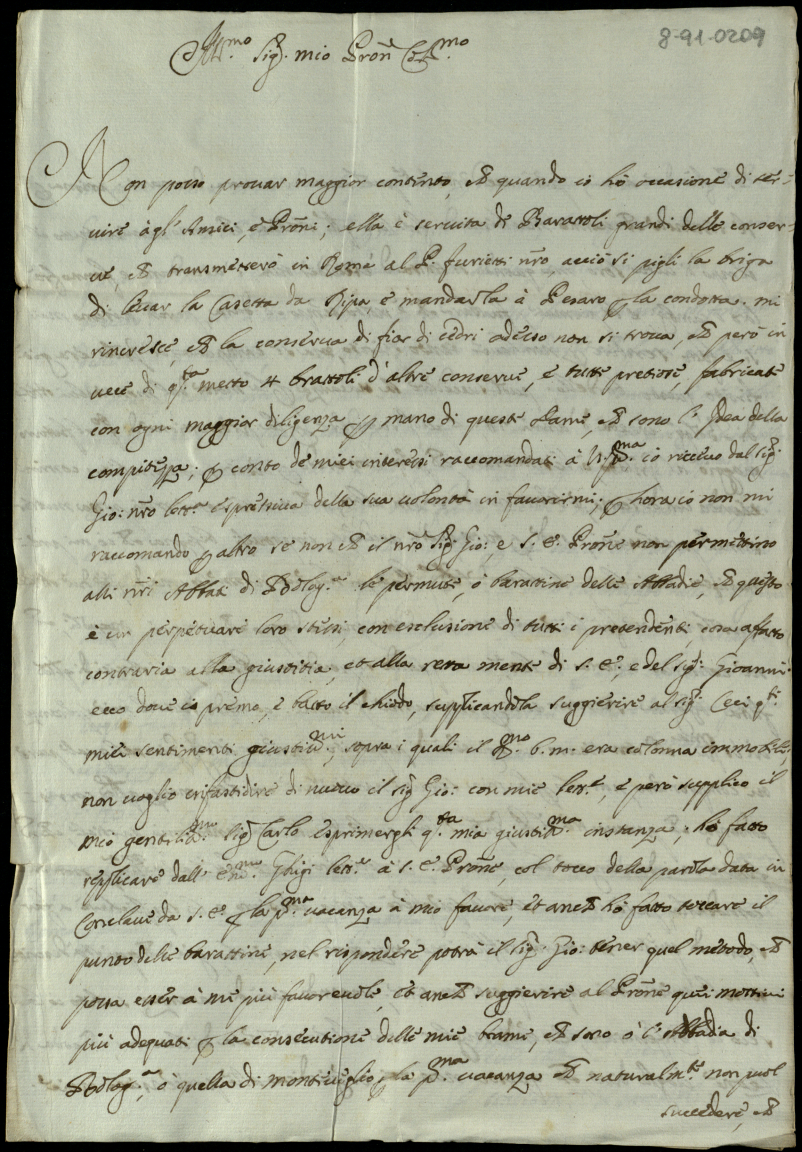 8-91-0209
Ill.mo Sig.r mio Pron Col.mo
Non posso provar maggior contento, che quando io hò occasione di ser-
vire à gl' Amici, è Proni; ella è servita de Barattoli grandi delle conser-
ve, che transmetterò in Roma al P. furietti nro, acciò si pigli la briga
di levar la Casetta da Ripa, è mandarla à Pesaro per la condotta. mi
rincresce, che la conserva di fior di cedri adesso non si trova, che però in
vece di q.ta metto 4 brattoli d'altre conserve, è tutte pretiose, fabricate
con ogni maggior diligenza per mano di queste Dame, che sono l'Idea della
compitezza; per conto de miei interessi raccomandati à io ricevo dal sig.r
Gio: nro lett.a espressiva della sua volontà in favorirmi; per hora io non mi
raccomando per altro se non che il nro Sig.r Gio: e S. E. Prone non permettino
alli nri Abbati di Bolog.a le permute, ò barattine delle Abbadie, che questo
è un perpetuare loro stessi, con esclusione di tutti i pretendenti, cosa affatto
contraria alla giustitia, et alla retta mente di S. E., e del sig.r Gioanni.
ecco dove io premo, è tutto il chiedo, supplicandola suggierire al sig.r Ceci q.ti
miei sentimenti giustis.mi, sopra i quali il b. m. era colonna immobile;
non voglio infastidire di nuovo il sig.r Gio: con mie lett.e, è però supplico il
mio gentilis.mo Sig.r Carlo esprimergli q.ta mia giustis.ma instanza; hò fatto
replicare dall' Em.mo Ghigi lett.e à S. E. Prone, col tocco della parola data in
Conclave da S. E. per la p.ma vacanza à mio favore, et anche hò fatto toccare il
punto delle barattine, nel rispondere potrà il sig.r Gio: tener quel metodo, che
possa esser à me più favorevole, et anche suggierire al Prone quei mottivi
più adequati per la consecutione delle mie brame, che sono ò l'Abbadia di
Bolog.a, ò quella di monteveglio, per la p.ma vacanza che naturalm.te non puol
succedere, che